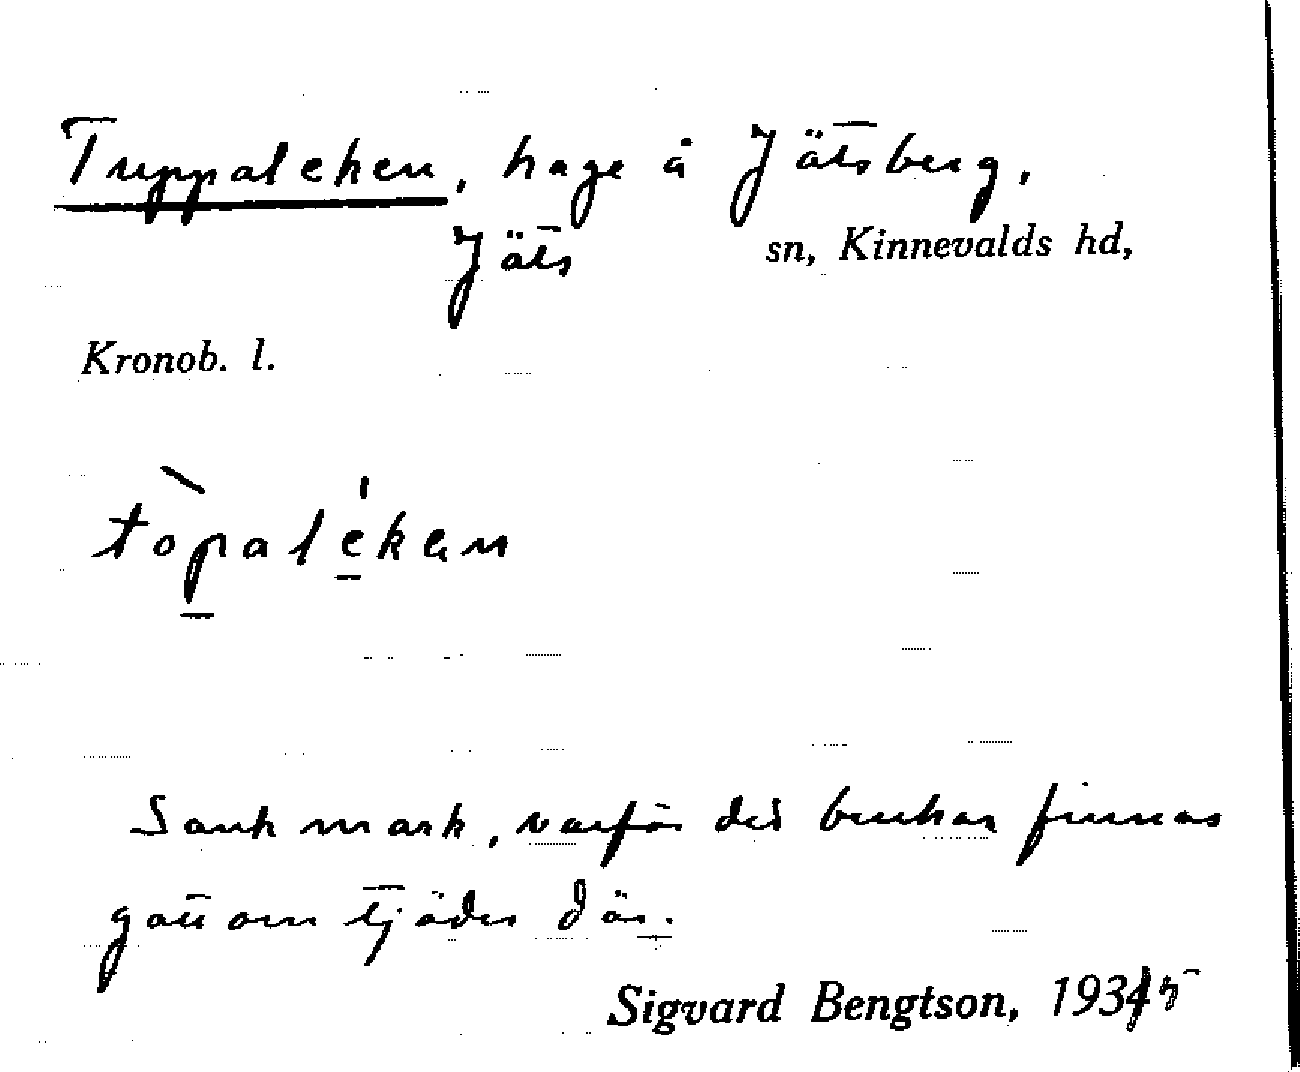 Tuppaleken, hage å Jätsberg,
Jäts sn, Kinnevalds hd,
Kronob. l.
tòpalékan
Sank mark, varför det brukar finnas
gott om tjäder där.
Sigvard Bengtson, 1935